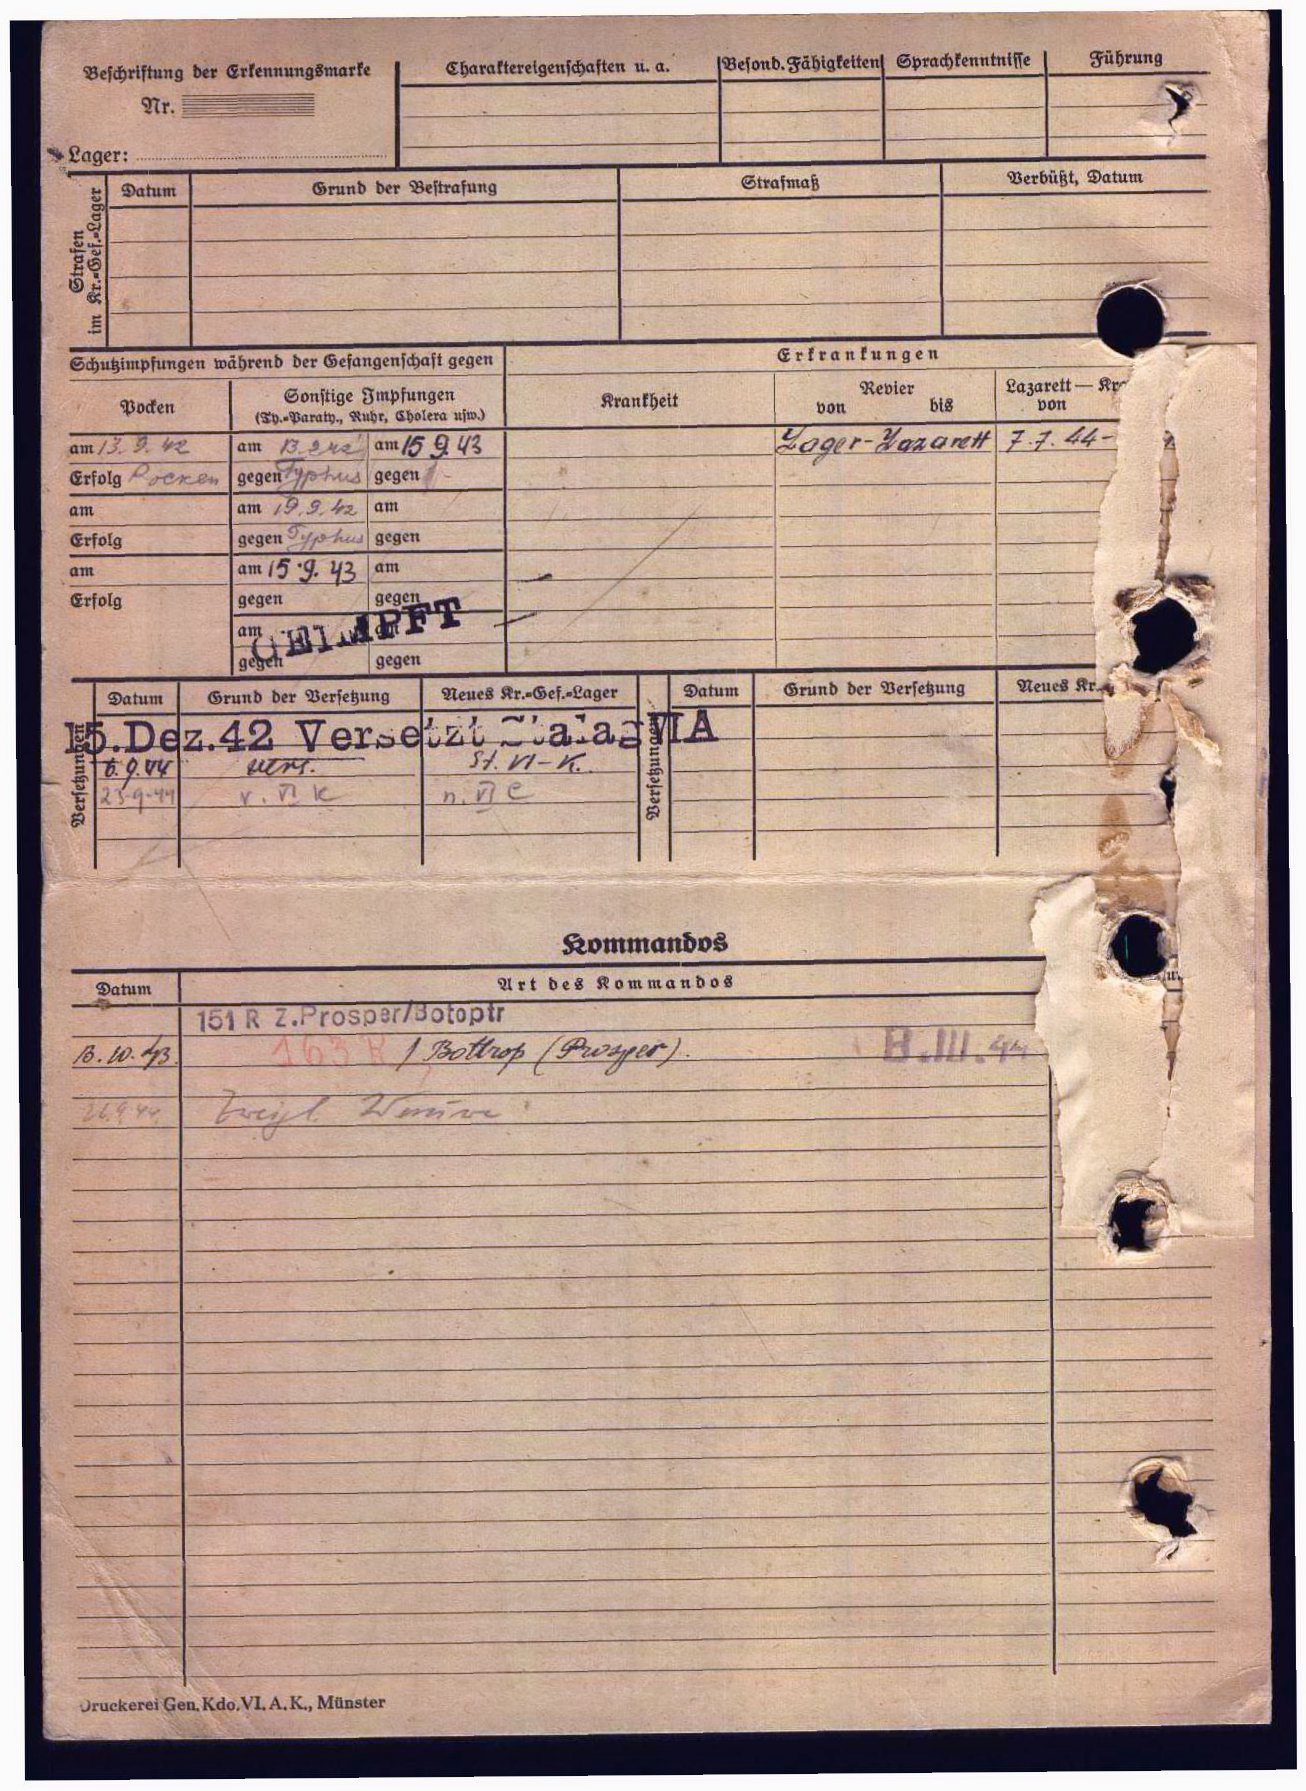 Beschriftung der Erkennungsmarke
Nr.
Lager:
Charaktereigenschaften u. a.
Besond. Fähigkeiten
Sprachkenntnisse
Führung
Strafen im Kr.=Gef.=Lager
Datum
Grund der Bestrafung
Strafmaß
Verbüßt, Datum
Schutzimpfungen während der Gefangenschaft gegen
Erkrankungen
Pocken
Sonstige Impfungen
(Ty.=Paraty., Ruhr, Cholera usw.)
Krankheit
Revier
von bis
Lazarett —
von
am 13.9.42 am 13.9.42 am 15 9.43 Lager-Lazarett 7.7.44-
Erfolg Pocken gegen Typhus gegen
am am 19.9.42 am
Erfolg gegen Typhus gegen
am am 15.9.43 am
Erfolg gegen gegen
am am
GEIMPFT
gegen gegen
Versetzungen
Datum Grund der Versetzung Neues Kr.=Gef.=Lager
Versetzungen
Datum Grund der Versetzung Neues Kr.
15.Dez.42 Versetzt Stalag VI A
6.9.44 vers. St. VI-K.
23-9-44 v. VI K n. VI C
Kommandos
Datum
Art des Kommandos
151 R Z.Prosper/Botoptr
13.10.43. 163 R / Bottrop (Prosper).
Druckerei Gen. Kdo. VI. A. K., Münster